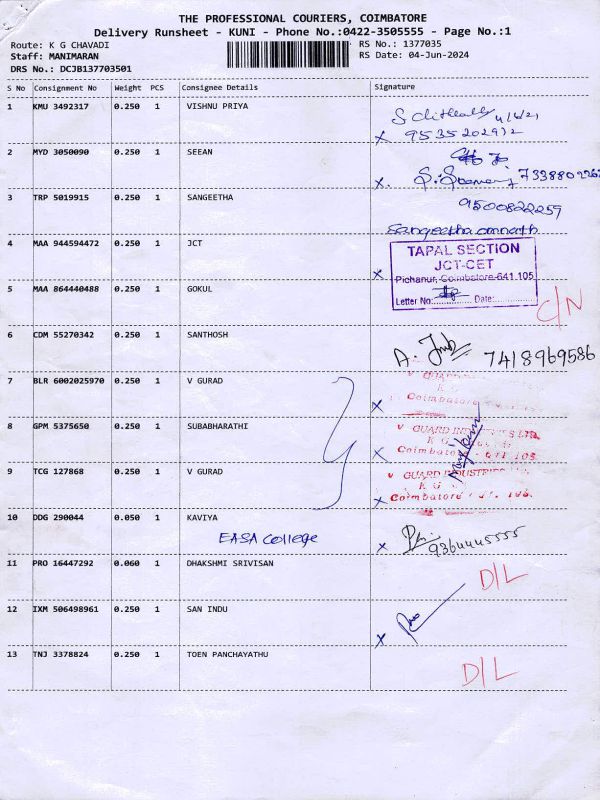 THE PROFESSIONAL COURIERS, COIMBATORE
Delivery Runsheet - KUNI - Phone No.:0422-3505555 - Page No.:1
Route: K G CHAVADI
RS No.: 1377035
Staff: MANIMARAN
RS Date: 04-Jun-2024
DRS No.: DCJB137703501
S No Consignment No Weight PCS Consignee Details Signature
1 KMU 3492317 0.250 1 VISHNU PRIYA
9535202912
2 MYD 3050090 0.250 1 SEEAN
x.
3 TRP 5019915 0.250 1 SANGEETHA 9500822259
Sangeetha
4 MAA 944594472 0.250 1 JCT
TAPAL SECTION
JCT-CET
Pichanur, Coimbatore-641 105
x
Letter No: Date:
5 MAA 864440488 0.250 1 GOKUL
C/N
6 CDM 55270342 0.250 1 SANTHOSH
A. 7418969586
7 BLR 6002025970 0.250 1 V GURAD
x Coimbatore
8 GPM 5375650 0.250 1 SUBABHARATHI
V GUARD INDUSTRIES LTD.
K G
x Coimbatore - 641 105
9 TCG 127868 0.250 1 V GURAD
V GUARD INDUSTRIES
K G
x Coimbatore
10 DDG 290044 0.050 1 KAVIYA
EASA College
x 9364445555
11 PRO 16447292 0.060 1 DHAKSHMI SRIVISAN
D/L
12 IXM 506498961 0.250 1 SAN INDU
x
13 TNJ 3378824 0.250 1 TOEN PANCHAYATHU
D/L